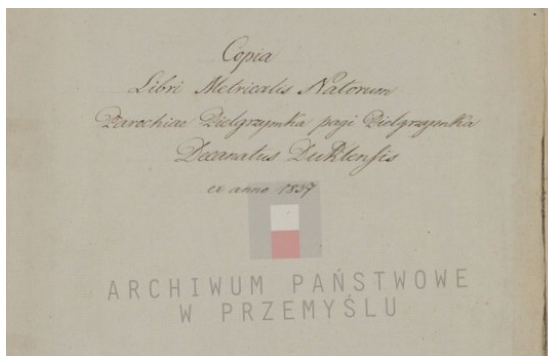 Copia
Libri Metricalis Natorum
Parochiae Pielgrzymka pagi Pielgrzymka
Decanatus Duklensis
ex anno 1837
ARCHIWUM PAŃSTWOWE
W PRZEMYŚLU